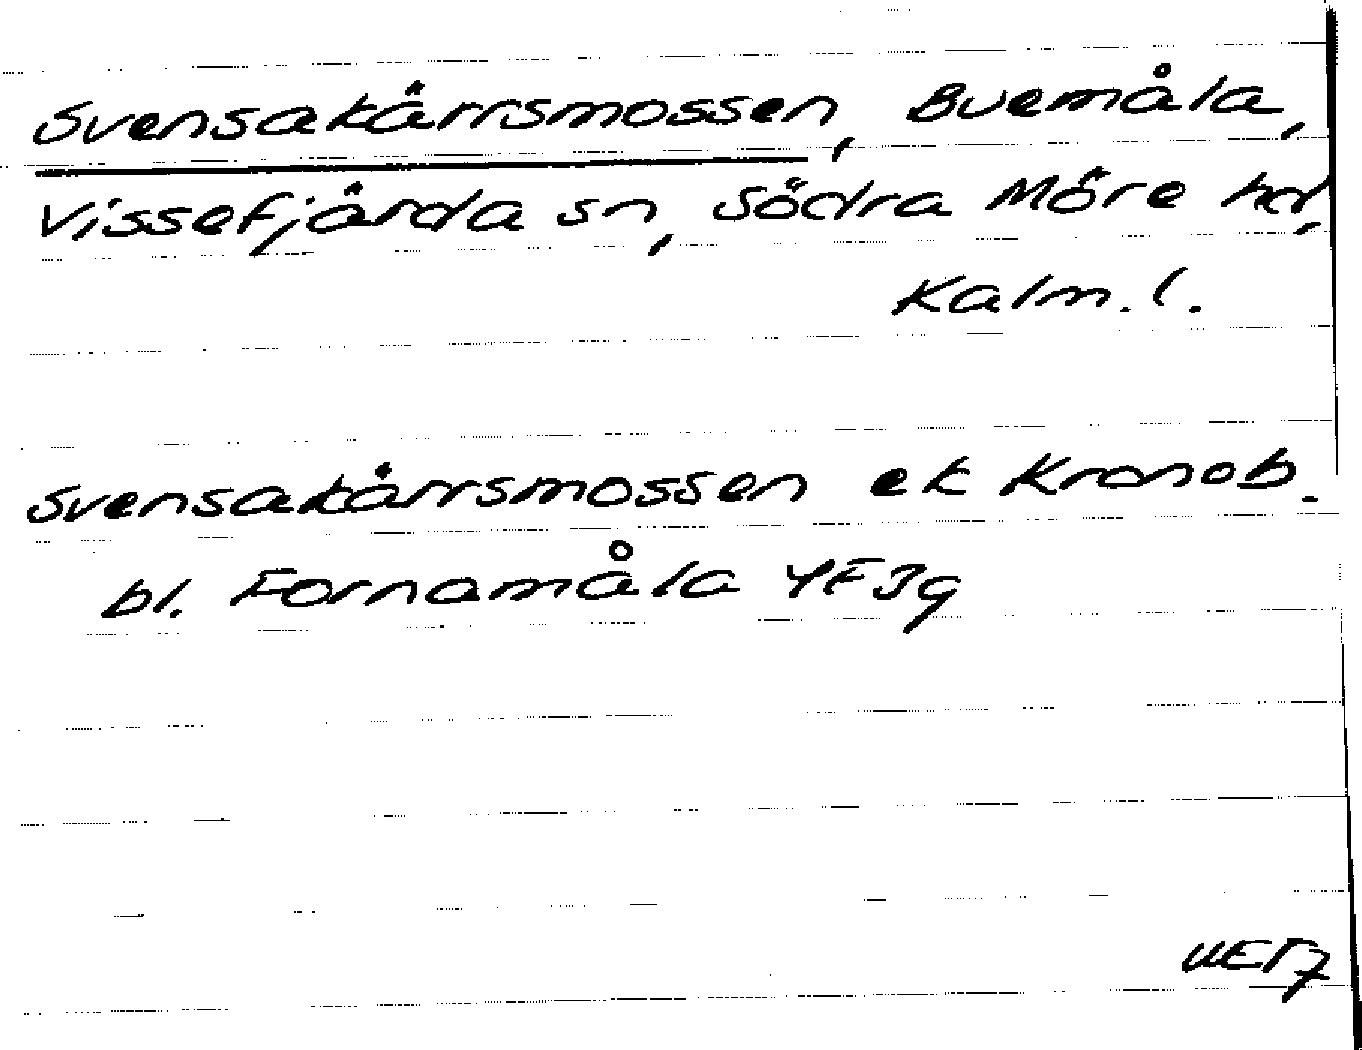 Svensakärrsmossen, Buemåla,
Vissefjärda sn, Södra Möre hd,
Kalm. l.
Svensakärrsmossen ek Kronob.
bl. Fornamåla 4F3g